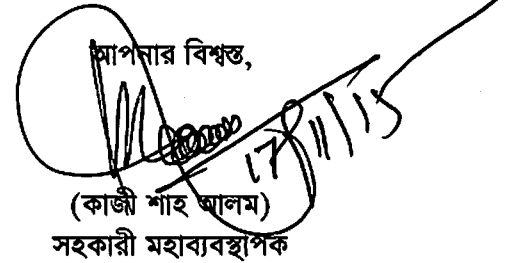 আপনার বিশ্বস্ত,
(কাজী শাহ আলম)
সহকারী মহাব্যবস্থাপক